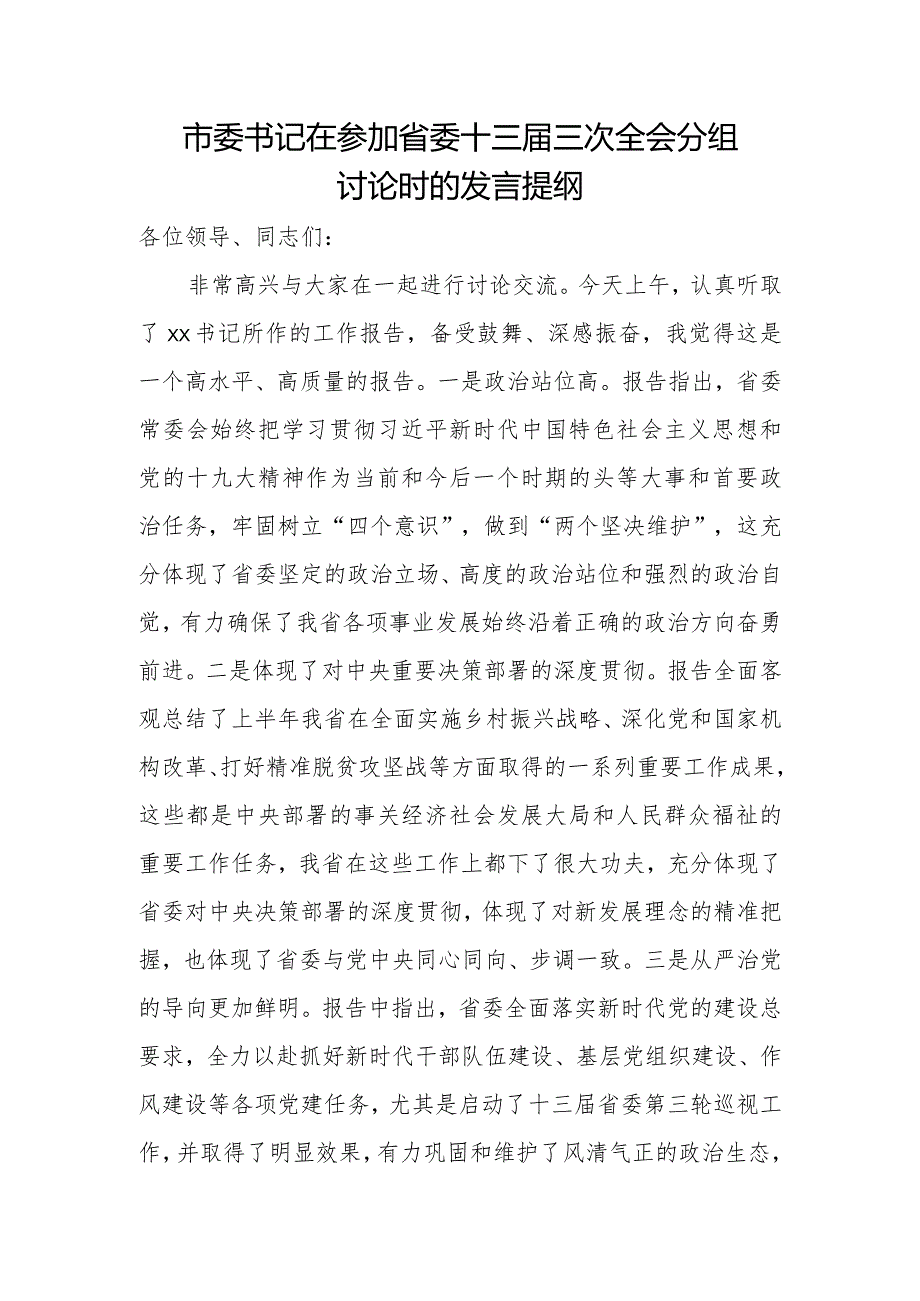 市委书记在参加省委十三届三次全会分组
讨论时的发言提纲
各位领导、同志们：
非常高兴与大家在一起进行讨论交流。今天上午，认真听取
了 xx 书记所作的工作报告，备受鼓舞、深感振奋，我觉得这是
一个高水平、高质量的报告。一是政治站位高。报告指出，省委
常委会始终把学习贯彻习近平新时代中国特色社会主义思想和
党的十九大精神作为当前和今后一个时期的头等大事和首要政
治任务，牢固树立“四个意识”，做到“两个坚决维护”，这充
分体现了省委坚定的政治立场、高度的政治站位和强烈的政治自
觉，有力确保了我省各项事业发展始终沿着正确的政治方向奋勇
前进。二是体现了对中央重要决策部署的深度贯彻。报告全面客
观总结了上半年我省在全面实施乡村振兴战略、深化党和国家机
构改革、打好精准脱贫攻坚战等方面取得的一系列重要工作成果，
这些都是中央部署的事关经济社会发展大局和人民群众福祉的
重要工作任务，我省在这些工作上都下了很大功夫，充分体现了
省委对中央决策部署的深度贯彻，体现了对新发展理念的精准把
握，也体现了省委与党中央同心同向、步调一致。三是从严治党
的导向更加鲜明。报告中指出，省委全面落实新时代党的建设总
要求，全力以赴抓好新时代干部队伍建设、基层党组织建设、作
风建设等各项党建任务，尤其是启动了十三届省委第三轮巡视工
作，并取得了明显效果，有力巩固和维护了风清气正的政治生态，